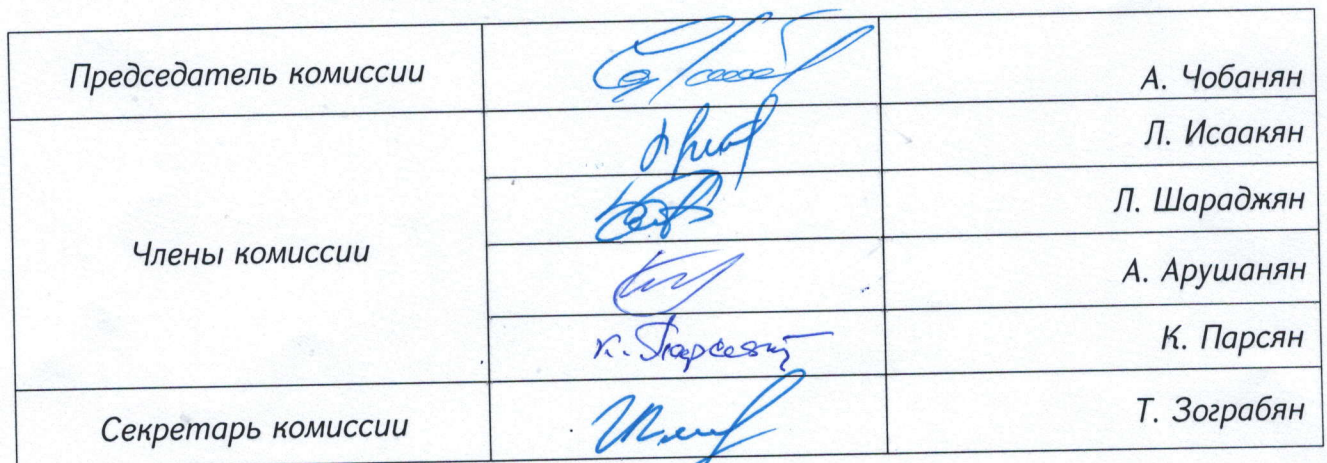 Председатель комиссии
А. Чобанян
Члены комиссии
Л. Исаакян
Л. Шараджян
А. Арушанян
К. Парсян
К. Парсян
Секретарь комиссии
Т. Зограбян